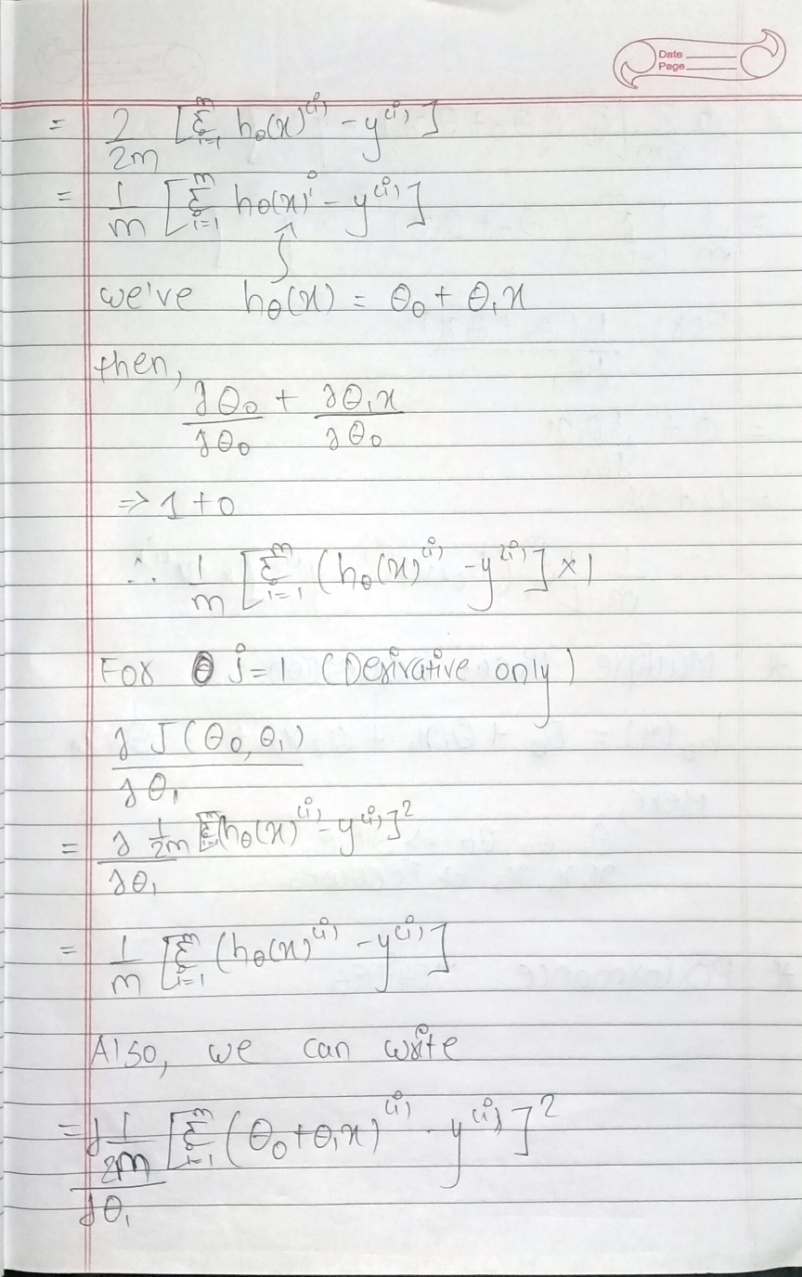 Date
Page
= 2/2m [Σ_{i=1}^{m} hθ(x)^(i) - y^(i)]
= 1/m [Σ_{i=1}^{m} hθ(x)^i - y^(i)]
we've hθ(x) = θ₀ + θ₁x
then,
∂θ₀/∂θ₀ + ∂θ₁x/∂θ₀
⇒ 1 + 0
∴ 1/m [Σ_{i=1}^{m} (hθ(x)^(i) - y^(i)] × 1
For θ j=1 (Derivative only)
∂J(θ₀, θ₁)/∂θ₁
= ∂ 1/2m [Σ(hθ(x)^(i) - y^(i)]²/∂θ₁
= 1/m [Σ_{i=1}^{m} (hθ(x)^(i) - y^(i)]
Also, we can write
= ∂ 1/2m [Σ_{i=1}^{m} (θ₀ + θ₁x)^(i) - y^(i)]²/∂θ₁